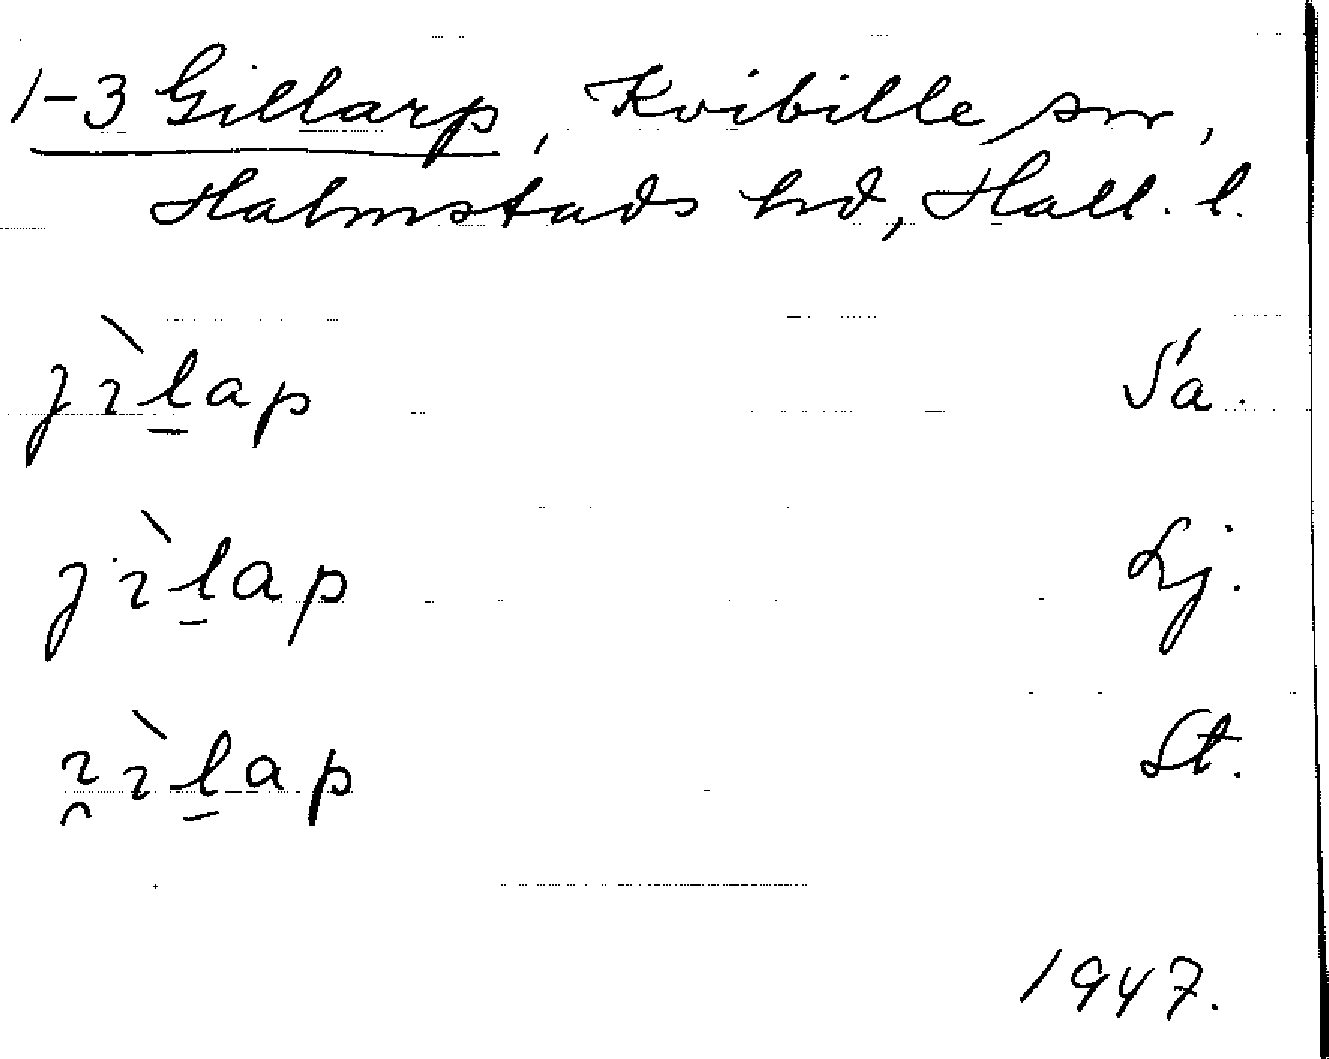 1-3 Gillarp, Kvibille sn,
Halmstads hd, Hall. l.
jɿ̀l̲ap Sä.
jɿ̀l̲ap Lj.
ɿ̯ɿ̀l̲ap St.
1947.